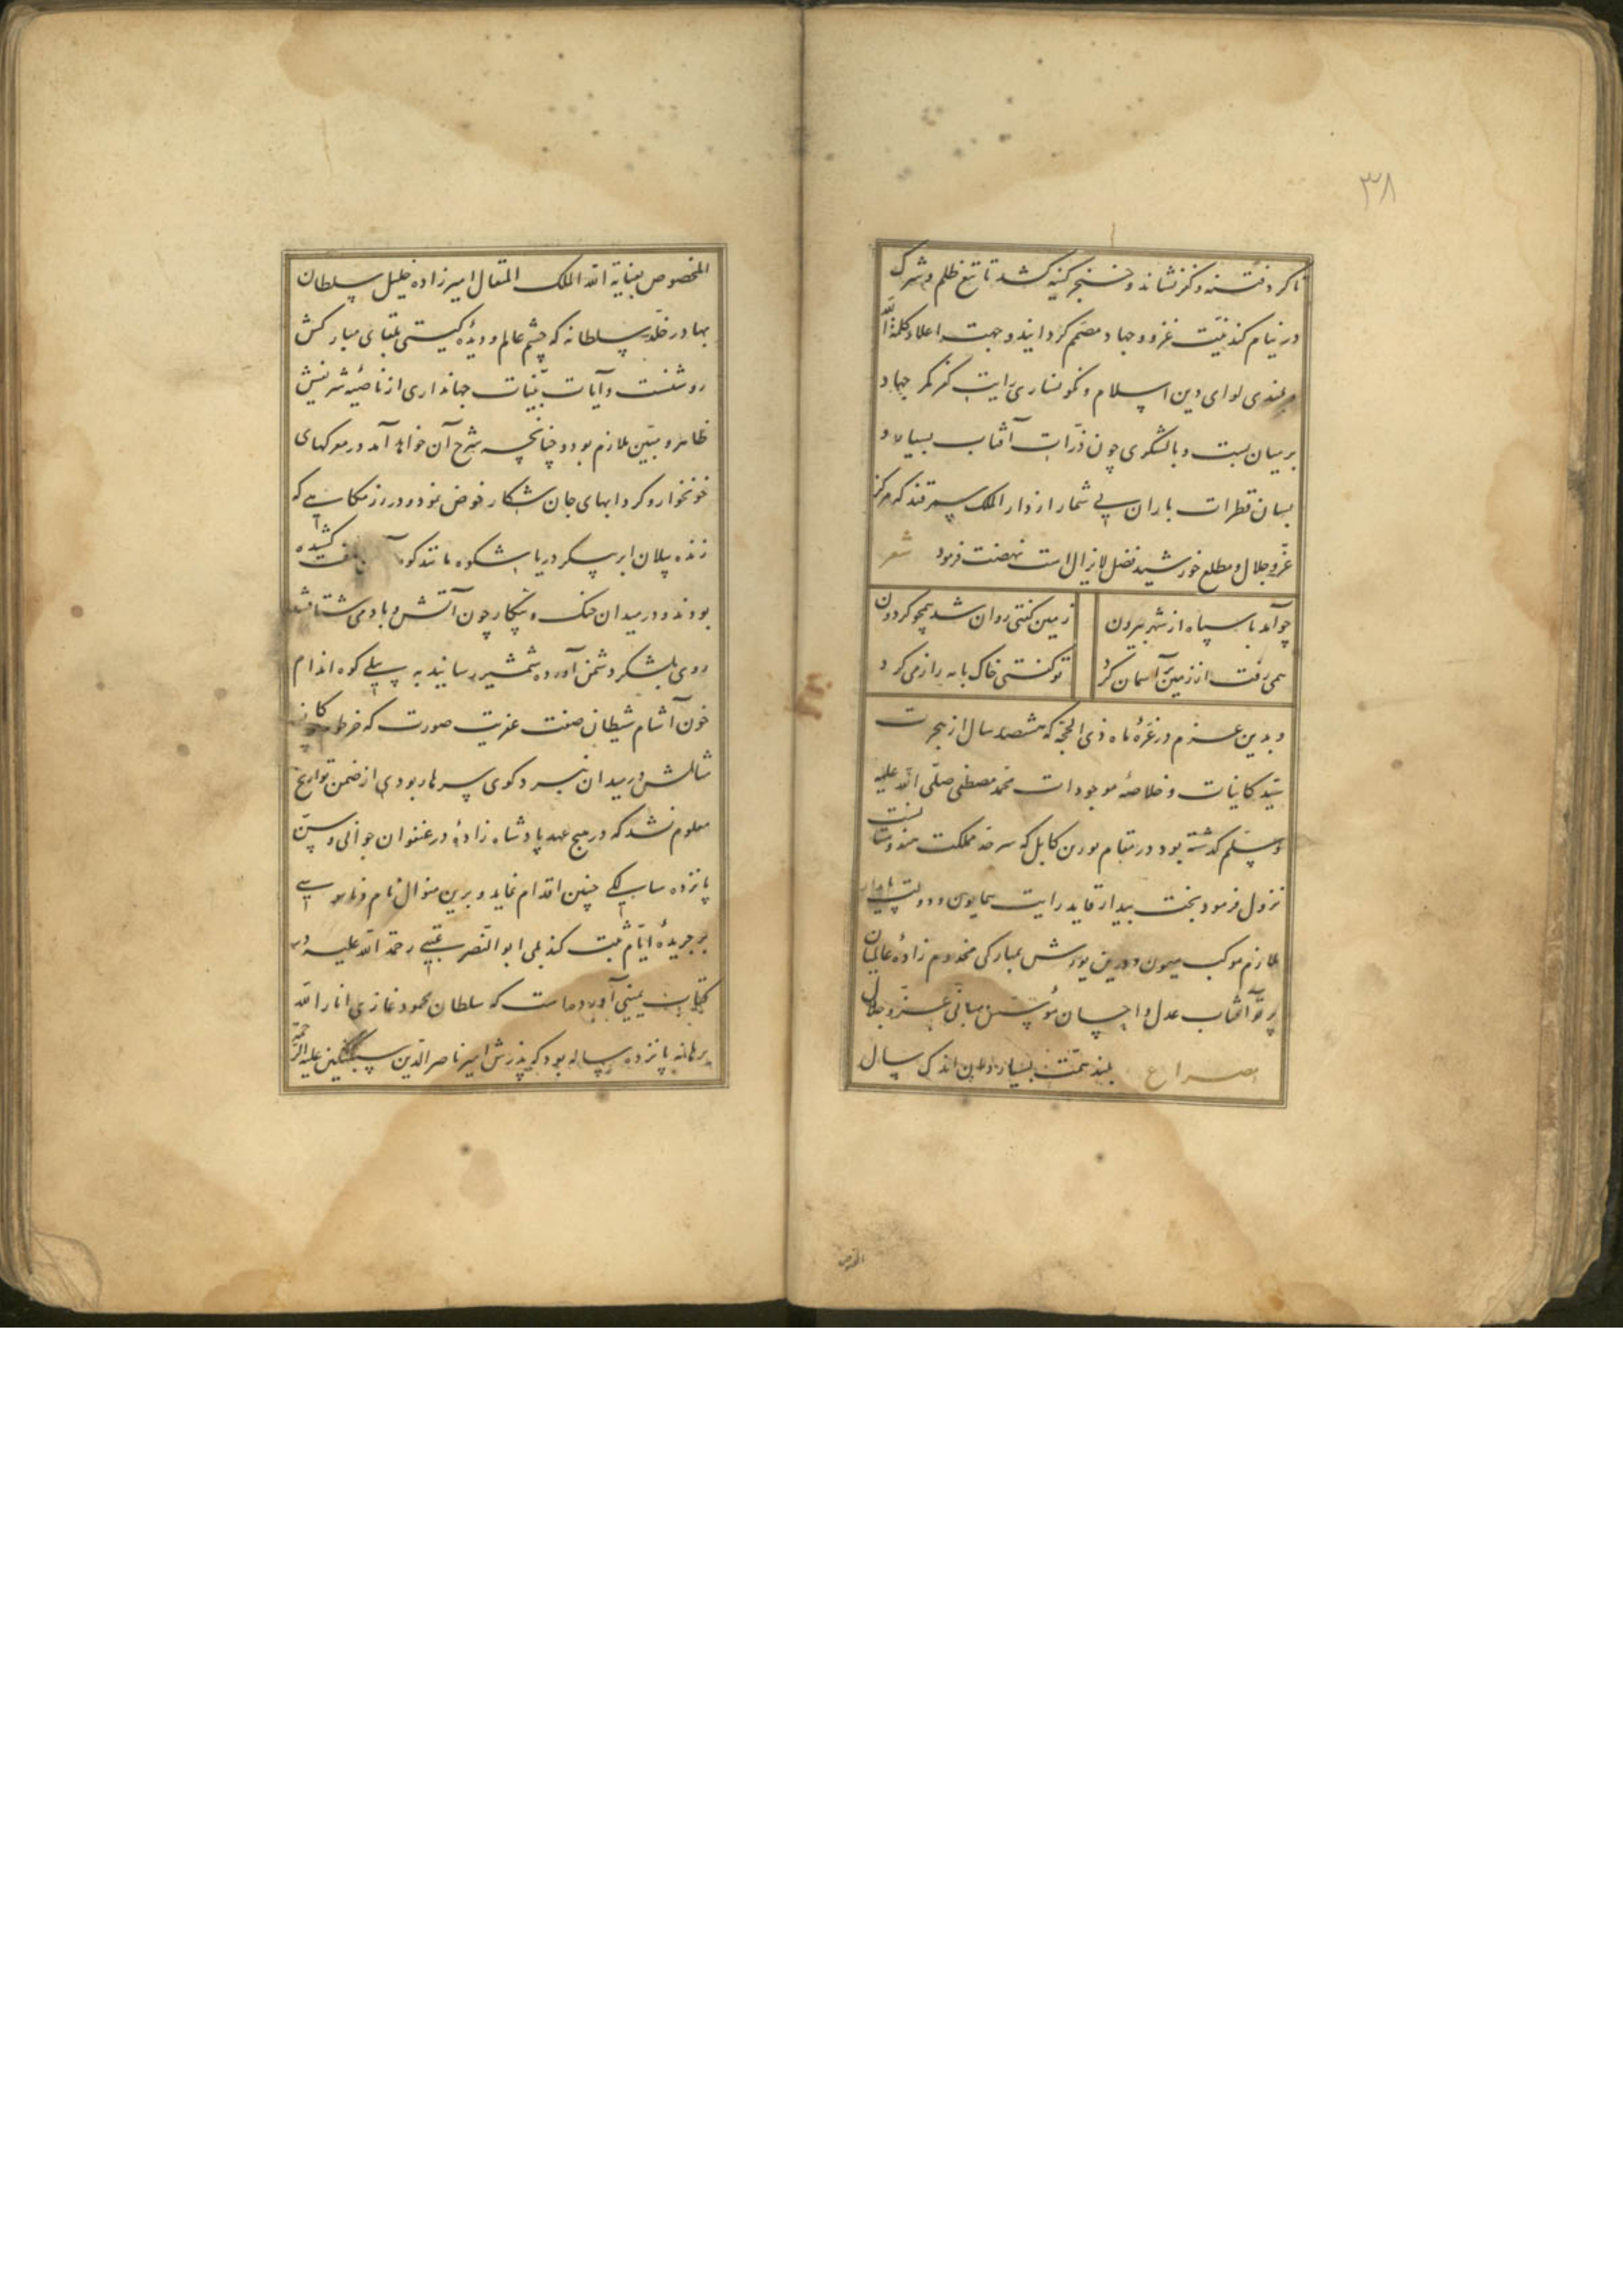 ۳۸
تا کرد فتنه و کفر نشاند و خنجر کینه کشد تا تیغ ظلم و شرک
در نیام کند نیّت غزو و جهاد مصمّم کردانید و جهت اعلاء کلمة الله
و بلندی لوای دین اسلام و نکونساری رایت کفر کمر جهاد
بر میان بست و با لشکری چون ذرّات آفتاب بسیار و
بسان قطرات باران بی شمار از دار الملک سمرقند که مرکز
عزّ و جلال و مطلع خورشید فضل لایزال است نهضت فرمود شعر
چو آمد با سپاه از شهر بیرون زمین کفتی روان شد همچو کردون
همی رفت از زمین بر آسمان کرد تو کفتی خاک با مه راز می کرد
و بدین عزم در غرّهٔ ماه ذی الحجّه که هشتصد سال از هجرت
سیّد کاینات و خلاصهٔ موجودات محمّد مصطفی صلّی الله علیه
و سلّم کذشته بود در مقام بورن کابل که سرحد مملکت هندوستانست
نزول فرمود بخت بیدار قاید رایت همایون و دولت پایدار
ملازم موکب میمون و درین یورش بمبارکی مخدوم زادهٔ عالمیان
پرتو آفتاب عدل و احسان مؤسّس مبانی عزّ و جلال
مصراع بلند همّت بسیار دان اندک سال
المخصوص
المخصوص بعنایة الله الملک المتعال امیرزاده خلیل سلطان
بهادر خلّد سلطانه که چشم عالم و دیدهٔ کیتی بلقای مبارکش
روشنست و آیات بیّنات جهانداری از ناصیهٔ شریفش
ظاهر و مبیّن ملازم بود و چنانچه شرح آن خواهد آمد در معرکهای
خونخوار و کردابهای جان شکار خوض نمود و در رزمکاهی که
زنده پیلان ابر پیکر دریا شکوه مانند کوه صف کشیده
بودند و در میدان جنک و پیکار چون آتش و باد می شتافتند
روی بلشکر دشمن آورده شمشیر رسانید به پیلی کوه اندام
خون آشام شیطان صفت عفریت صورت که خرطوم
مثالش در میدان نبرد کوی سرها ربودی از ضمن تواریخ
معلوم نشد که در هیچ عهد پادشاه زادهٔ در عنفوان جوانی و سنّ
پانزده سالکی چنین اقدام نماید و برین منوال نام و ناموسی
بر جریدهٔ ایّام ثبت کند بلی ابو النّصر عتبی رحمة الله علیه در
کتاب یمینی آورده است که سلطان محمود غازی انار الله
برهانه پانزده ساله بود که پذرش امیر ناصر الدّین سبکتکین علیه الرّحمة